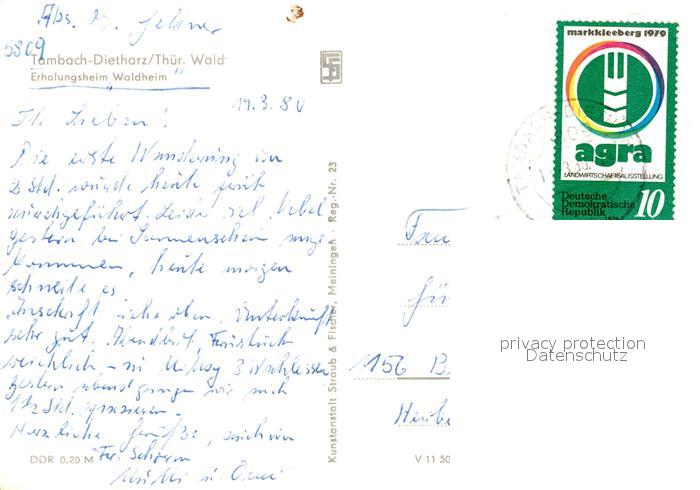 Abs. z.
5809
Tambach-Dietharz/Thür. Wald
Erholungsheim „Waldheim"
19.3.80
Ih Lieben!
Die erste Wanderung von
2 Std. wurde heute früh
durchgeführt. Leider viel Nebel
gestern bei Sonnenschein ange-
kommen, heute morgen
schneite es
Anschrift siehe oben. Unterkunft
sehr gut. Abendbrot, Frühstück
reichlich - zu Mittag 3 Wahlessen
gestern abend gingen wir noch
1½ Std. spazieren.
Herzliche Grüße, auch von
Mutti u. Omi
DDR 0,20 M
Kunstanstalt Straub & Fischer, Meiningen Reg.-Nr. 23
V 11 50
markkleeberg 1979
agra
LANDWIRTSCHAFTSAUSSTELLUNG
Deutsche
Demokratische
Republik 10
Frau
156 B
privacy protection
Datenschutz